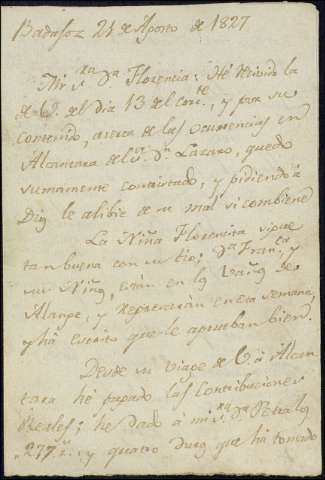 Badajoz 21 de Agosto de 1827
Mi S.ra D.a Florencia: Hé recivido la
de V. del dia 13 del corr.te, y por su
contenido, acerca de las ocurrencias en
Alcantara del S.or D.n Lazaro, quedo
sumamente contristado, y pidiendo á
Dios le alibie de su mal si combiene
La Niña Florencita sigue
tan buena con su tio; D.a Fran.ca y
su Niño, están en los Baños de
Alange, y regresarán en esta semana,
y há escrito que le aprueban bien.
Desde su viage de V. á Alcan
tara he pagado las contribuciones
Reales; he dado á mi S.ra D.a Petra los
277 r.s y quatro duros que ha tomado